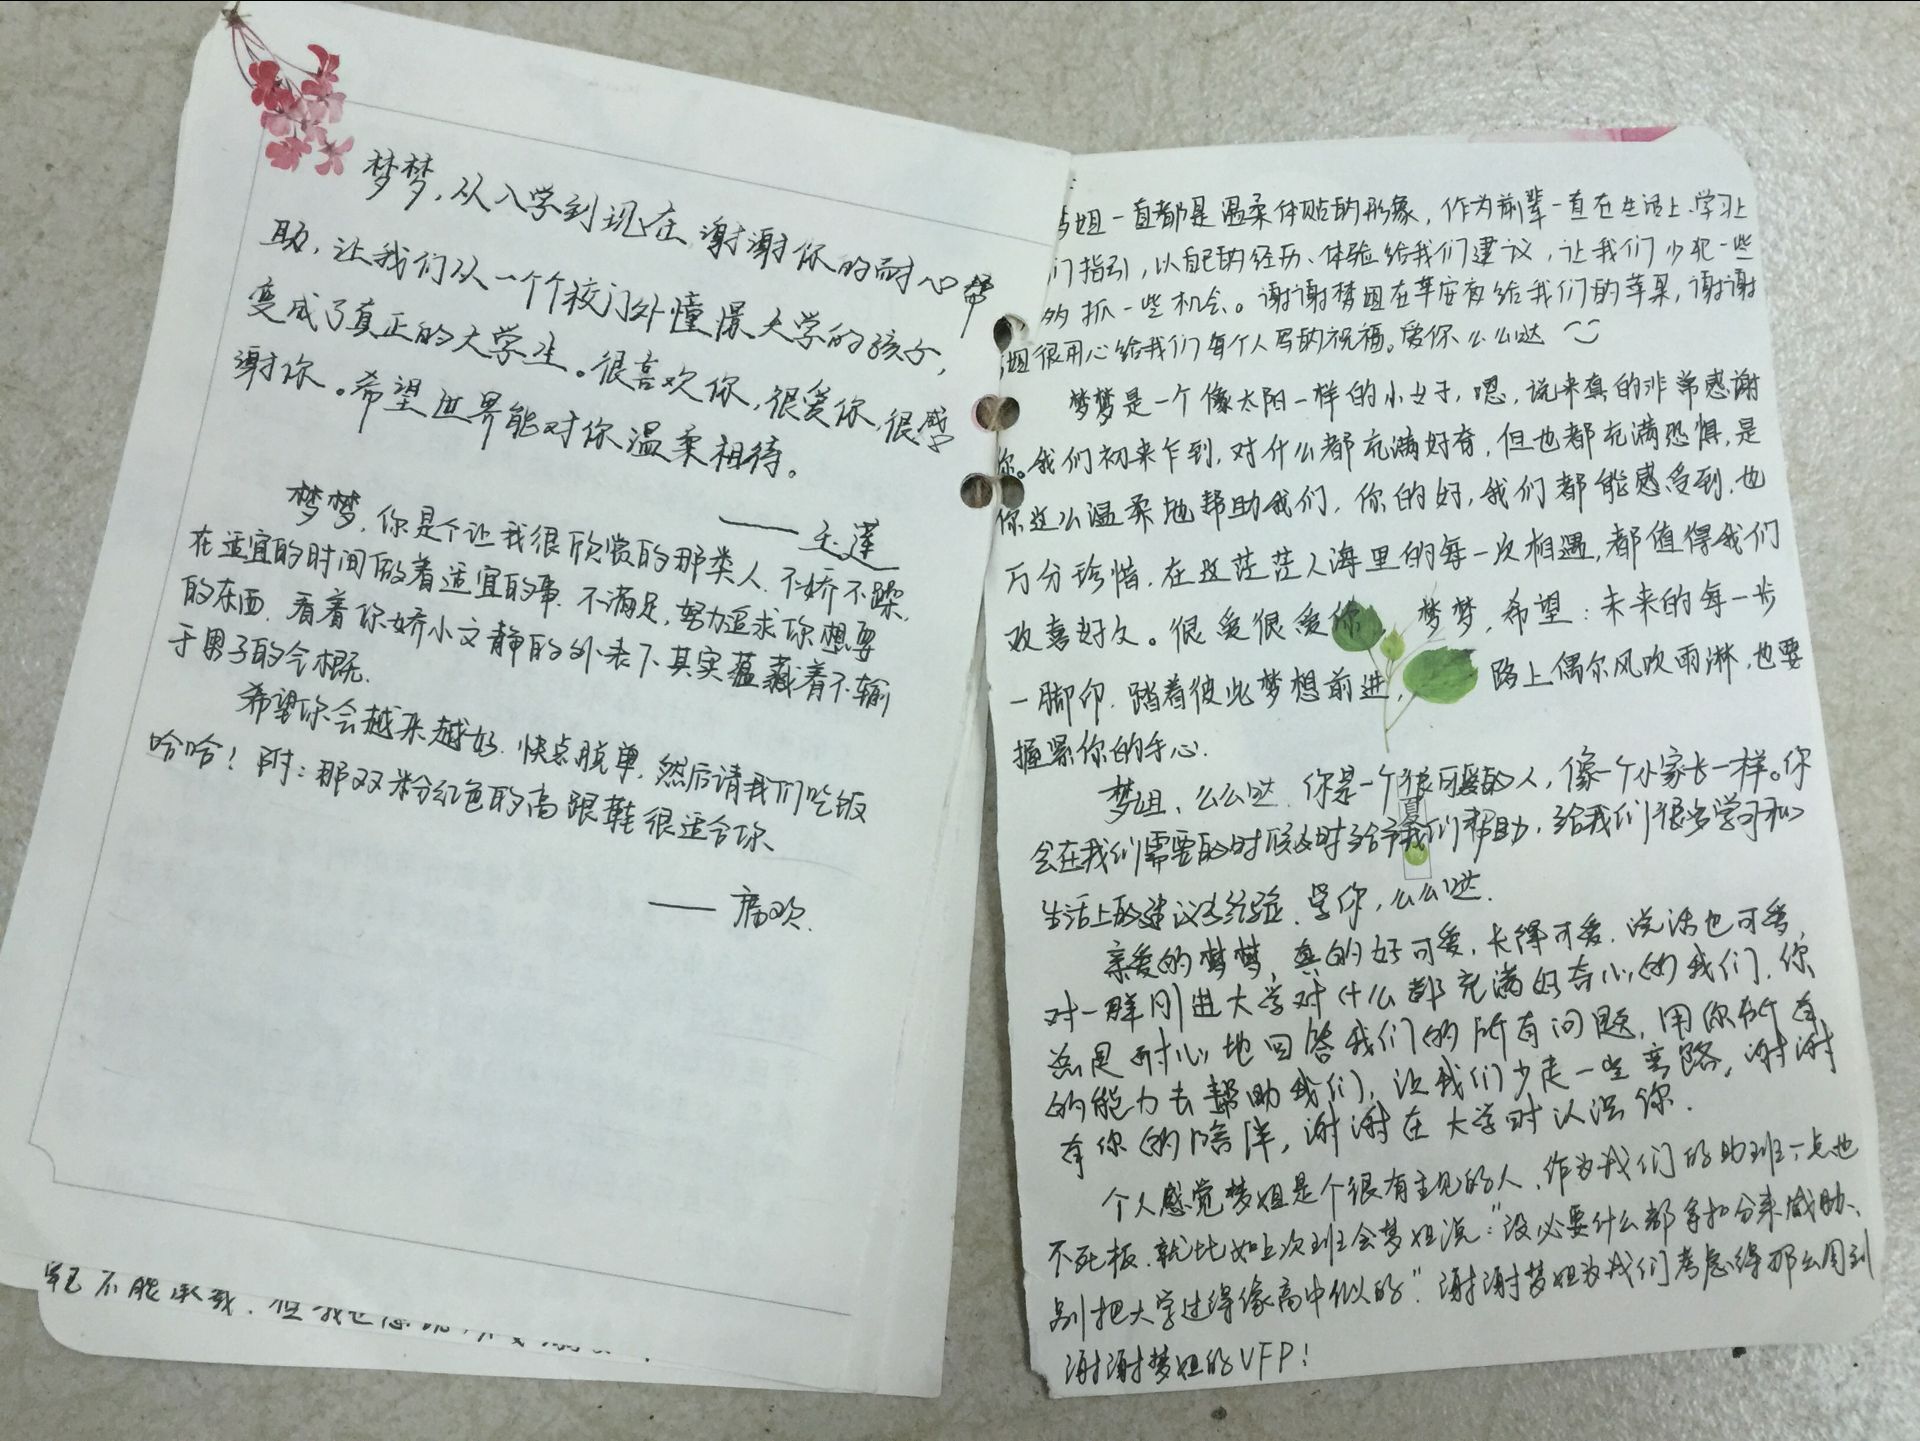 梦梦，从入学到现在，谢谢你的耐心帮
助，让我们从一个个校门外憧憬大学的孩子，
变成了真正的大学生。很喜欢你，很爱你，很感
谢你。希望世界能对你温柔相待。
——玉莲
梦梦，你是个让我很欣赏的那类人，不娇不躁，
在适宜的时间做着适宜的事，不满足，努力追求你想要
的东西，看着你娇小文静的外表下其实蕴藏着不输
于男子的气概。
希望你会越来越好，快点脱单，然后请我们吃饭
哈哈！附：那双粉红色的高跟鞋很适合你
——席欢
不能承载，但我也
姐一直都是温柔体贴的形象，作为前辈一直在生活上、学习上
们指引，以自己的经历、体验给我们建议，让我们少犯一些
的抓一些机会。谢谢梦姐在平安夜给我们的苹果，谢谢
姐很用心给我们每个人写的祝福。爱你么么哒
梦梦是一个像太阳一样的小女子，嗯，说来真的非常感谢
你。我们初来乍到，对什么都充满好奇，但也都充满恐惧，是
你这么温柔地帮助我们，你的好，我们都能感受到，也
万分珍惜，在这茫茫人海里的每一次相遇，都值得我们
欢喜好久。很爱很爱你，梦梦，希望：未来的每一步
一脚印，踏着彼此梦想前进，路上偶尔风吹雨淋，也要
握紧你的手心。
梦姐，么么哒，你是一个很可爱的人，像一个小家长一样。你
会在我们需要的时候及时给予我们帮助，给我们很多学习和
生活上的建议与经验，爱你，么么哒。
夏
亲爱的梦梦，真的好可爱，长得可爱，说话也可爱，
对一群刚进大学对什么都充满好奇心的我们，你
总是耐心地回答我们的所有问题，用你所有
的能力去帮助我们，让我们少走一些弯路，谢谢
有你的陪伴，谢谢在大学时认识你．
个人感觉梦姐是个很有主见的人，作为我们的助班一点也
不死板，就比如上次班会梦姐说：“没必要什么都拿扣分来威胁、
别把大学过得像高中似的”谢谢梦姐为我们考虑得那么周到
谢谢梦姐的VFP！